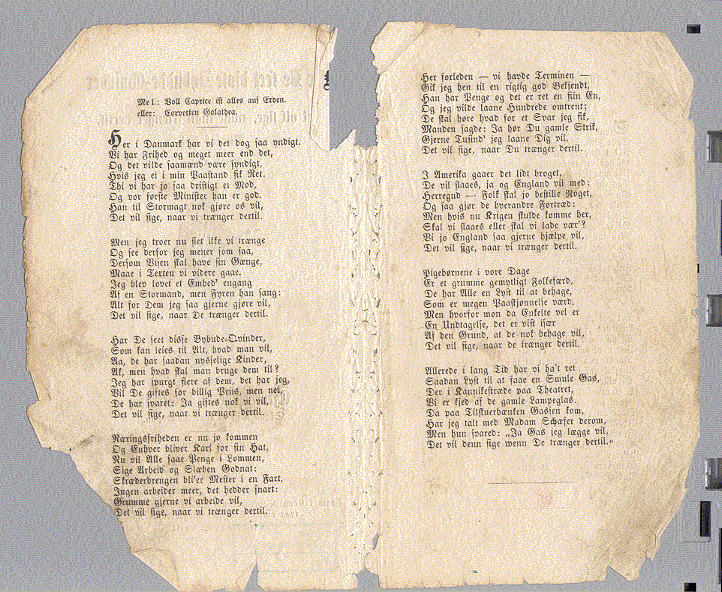 Mel.: Voll Caprice ist alles auf Erden.
eller: Corvetten Galathea.
Her i Danmark har vi det dog saa yndigt.
Vi har Frihed og meget meer end det,
Og det vilde saamænd være syndigt.
Hvis jeg ei i min Paastand fik Ret.
Thi vi har jo saa dristigt et Mod,
Og vor første Minister han er god.
Han til Stormagt nok gjøre os vil,
Det vil sige, naar vi trænger dertil.
Men jeg troer nu slet ikke vi trænge
Og see derfor jeg mener som saa,
Dersom Visen skal have sin Gænge,
Maae i Texten vi videre gaae.
Jeg blev lovet et Embed' engang
Af en Stormand, men Fyren han sang:
Alt for Dem jeg saa gjerne gjøre vil,
Det vil sige, naar De trænger dertil.
Har De seet disse Byhude-Qvinder,
Som kan leies til Alt, hvad man vil,
Aa, de har saadan nysselige Kinder,
Ak, men hvad skal man bruge dem til?
Jeg har spurgt flere af dem, det har jeg,
Vil De giftes for billig Priis, men nei,
De har svaret: Ja giftes nok vi vil,
Det vil sige, naar vi trænger dertil.
Næringsfriheden er nu jo kommen
Og Enhver bliver Karl for sin Hat,
Nu vil Alle faae Penge i Lommen,
Sige Arbeid og Slæben Godnat:
Skræderdrengen bli'er Mester i en Fart,
Ingen arbeider meer, det hedder snart:
Grumme gjerne vi arbeide vil,
Det vil sige, naar vi trænger dertil.
Her forleden — vi havde Terminen —
Gik jeg hen til en rigtig god Bekjendt,
Han har Penge og det er ret en fiin En,
Og jeg vilde laane Hundrede omtrent;
De skal høre hvad for et Svar jeg fik,
Manden sagde: Ja hør Du gamle Strik,
Gjerne Tusind' jeg laane Dig vil,
Det vil sige, naar Du trænger dertil.
I Amerika gaaer det lidt broget,
De vil slaaes, ja og England vil med:
Herregud — Folk skal jo bestille Noget,
Og saa gjør de hverandre Fortræd:
Men hvis nu Krigen skulde komme her,
Skal vi slaaes eller skal vi lade vær'?
Vi jo England saa gjerne hjælpe vil,
Det vil sige, naar vi trænger dertil.
Pigebørnene i vore Dage
Er et grumme gemytligt Folkefærd,
De har Alle en Lyst til at behage,
Som er megen Paaskjønnelse værd.
Men hvorfor mon da Enkelte vel er
En Undtagelse, det er vist især
Af den Grund, at de nok behage vil,
Det vil sige, naar de trænger dertil.
Allerede i lang Tid har vi ha't ret
Saadan Lyst til at faae en Smule Gas,
Der i Kannikestræde paa Theatret,
Vi er kjed af de gamle Lampeglas.
Da paa Tilskuerbænken Gassen kom,
Har jeg talt med Madam Schäfer derom,
Men hun svared: „Ja Gas jeg lægge vil,
Det vil denn sige wenn De trænger dertil."